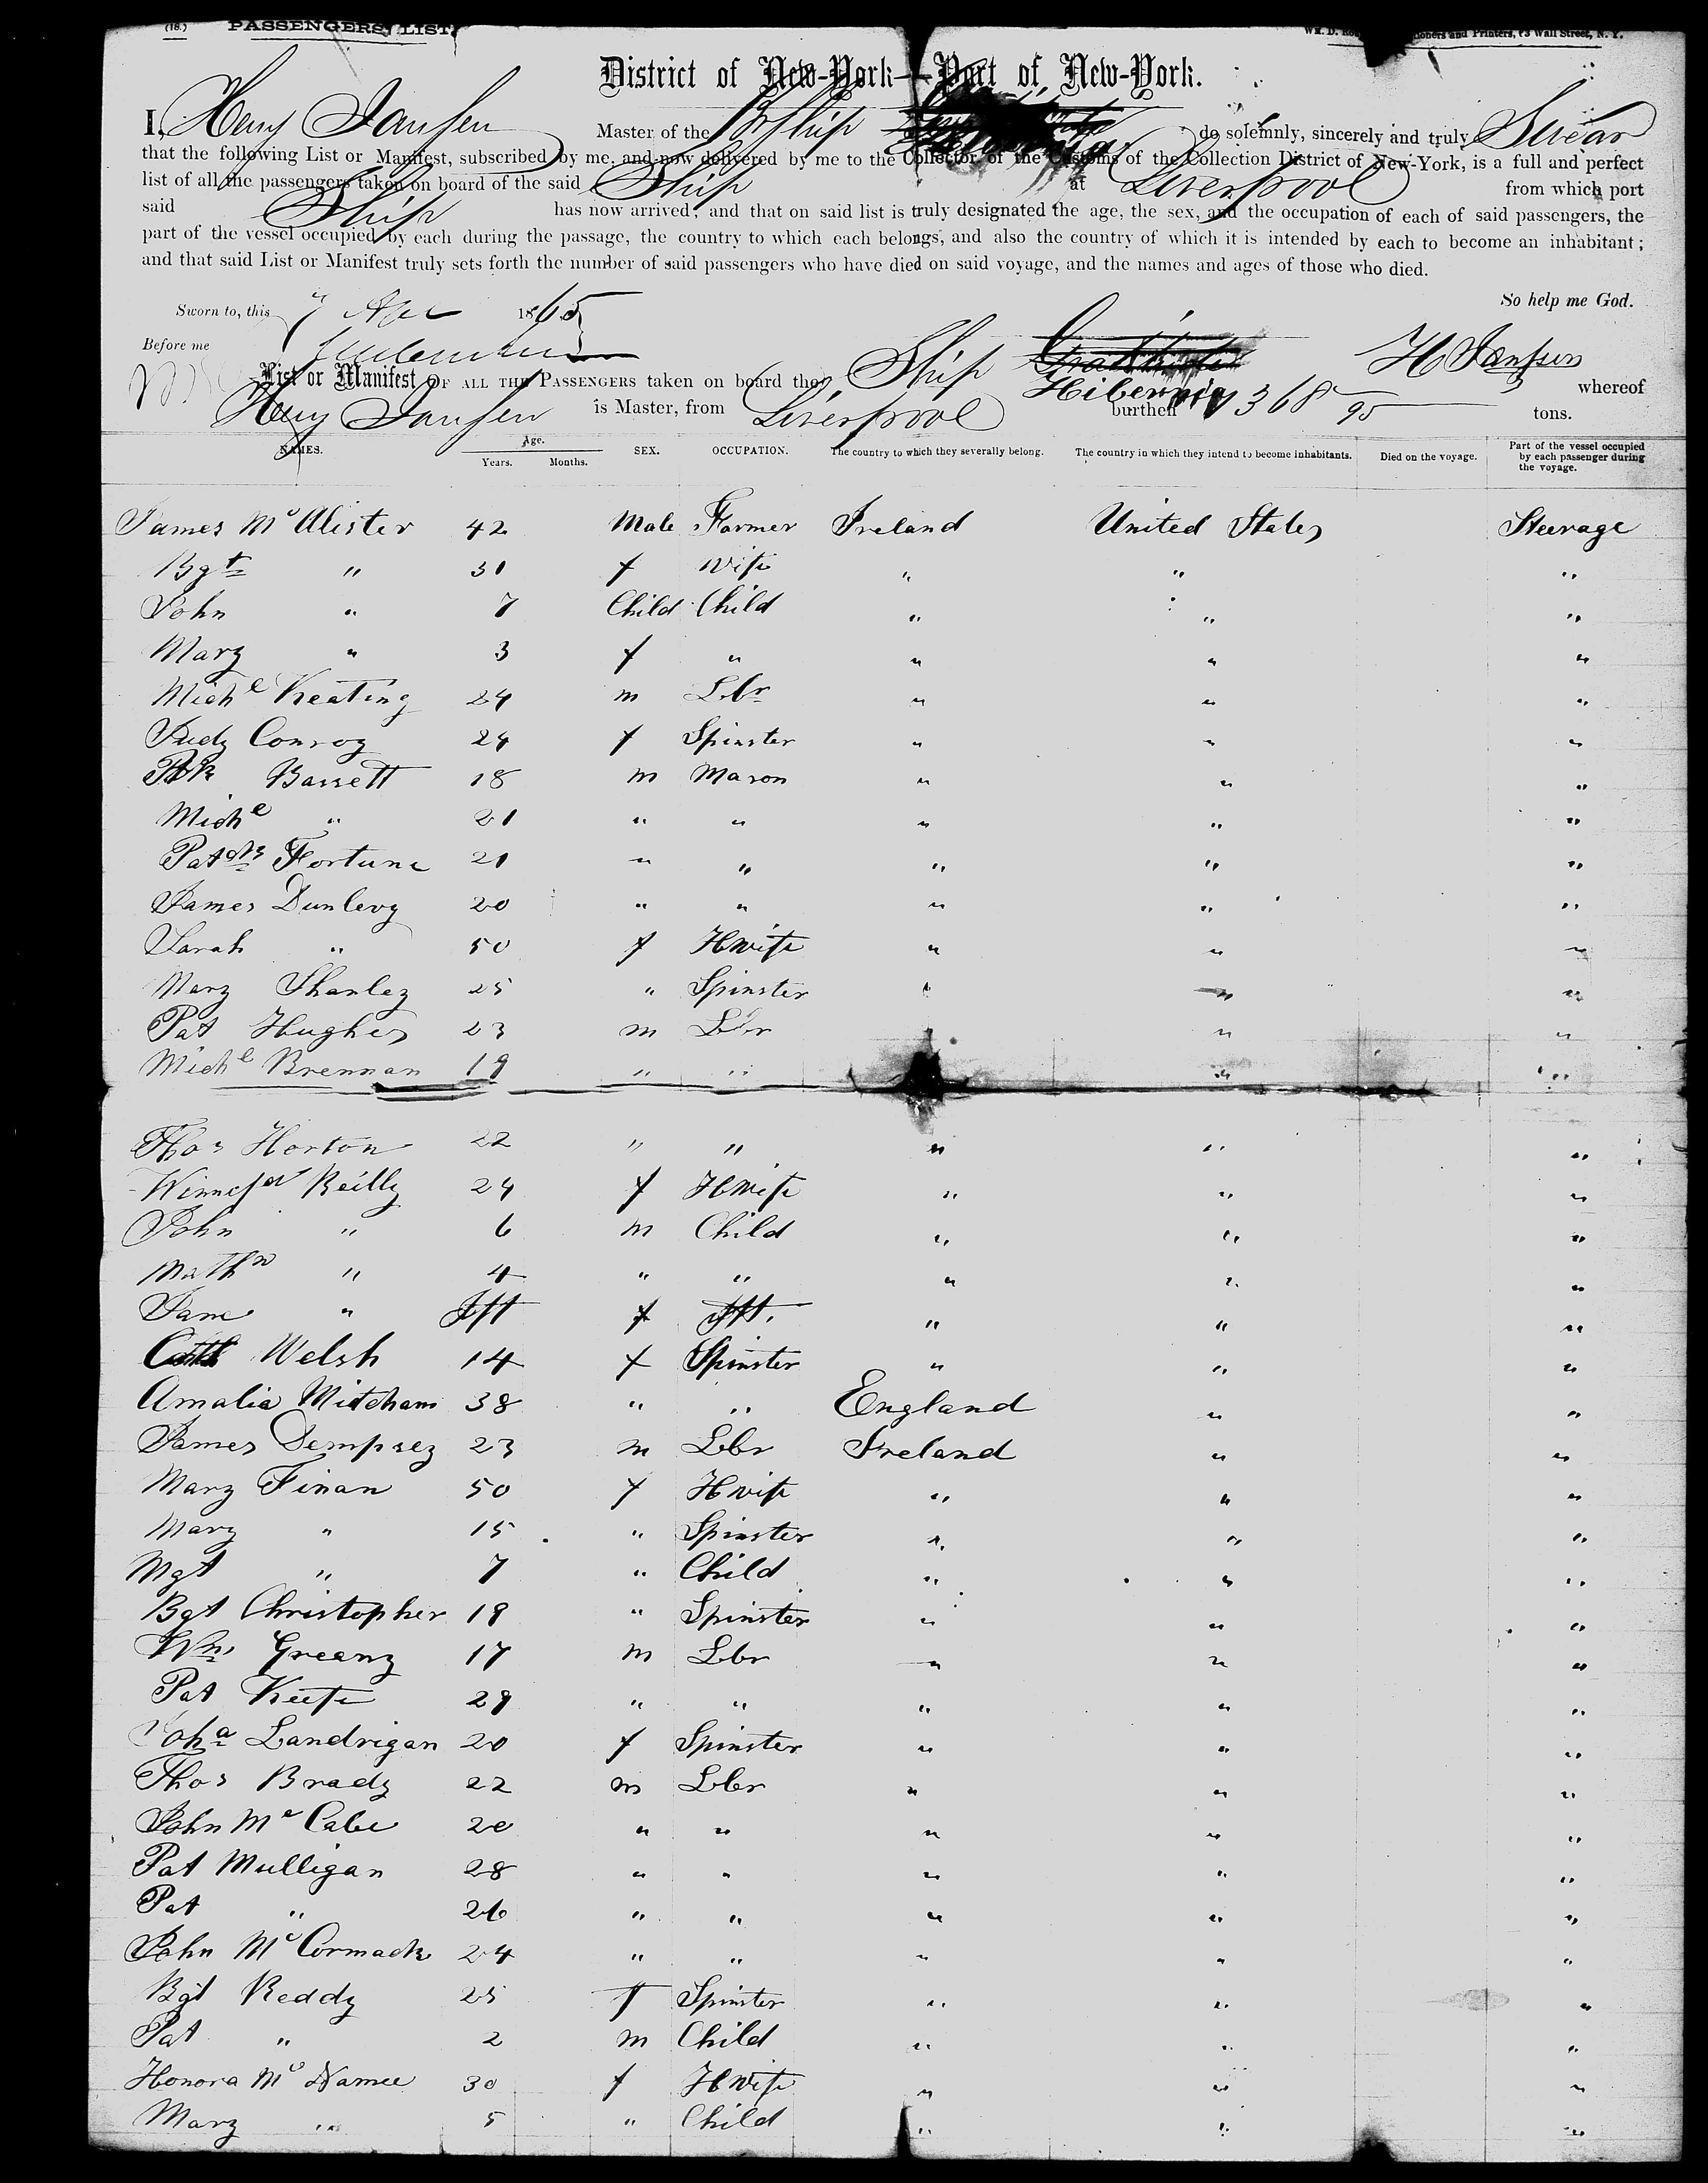 (18.) PASSENGERS' LIST.
Wm. D. and Printers, 63 Wall Street, N. Y.
District of New-York—Port of New-York.
I, Heny Jansen Master of the Br Ship do solemnly, sincerely and truly Swear
that the following List or Manifest, subscribed by me, and now delivered by me to the Collector of the Customs of the Collection District of New-York, is a full and perfect
list of all the passengers taken on board of the said Ship at Liverpool from which port
said Ship has now arrived; and that on said list is truly designated the age, the sex, and the occupation of each of said passengers, the
part of the vessel occupied by each during the passage, the country to which each belongs, and also the country of which it is intended by each to become an inhabitant;
and that said List or Manifest truly sets forth the number of said passengers who have died on said voyage, and the names and ages of those who died.
So help me God.
Sworn to, this 7 Apl 1865
Before me
H Jansen
List or Manifest OF ALL THE PASSENGERS taken on board the Ship Hibernia whereof
Heny Jansen is Master, from Liverpool burthen 1368 95 tons.
NAMES. Age. Years. Months. SEX. OCCUPATION. The country to which they severally belong. The country in which they intend to become inhabitants. Died on the voyage. Part of the vessel occupied by each passenger during the voyage.
James McAlister 42 Male Farmer Ireland United States Steerage
Bgt " 31 f Wife " " "
John " 7 Child Child " " "
Mary " 3 f " " " "
Michl Keating 24 m Lbr " " "
Judy Conroy 24 f Spinster " " "
Pk Barrett 18 m Mason " " "
Michl " 21 " " " " "
Patck Fortune 21 " " " " "
James Dunlevy 20 " " " " "
Sarah " 50 f HWife " " "
Mary Shanley 25 " Spinster " " "
Pat Hughes 23 m Lbr " " "
Michl Brennan 19 " " " "
Thos Horton 22 " " " " "
Winnefd Reilly 24 f HWife " " "
John " 6 m Child " " "
Mathw " 4 " " " " "
Jane " Ift f Ift. " " "
Cath Welsh 14 f Spinster " " "
Amalia Mitcham 38 " " England " "
James Dempsey 23 m Lbr Ireland " "
Mary Finan 50 f HWife " " "
Mary " 15 " Spinster " " "
Mgt " 7 " Child " " "
Bgt Christopher 19 " Spinster " " "
Wm Greany 17 m Lbr " " "
Pat Keefe 29 " " " " "
Joha Landrigan 20 f Spinster " " "
Thos Brady 22 m Lbr " " "
John McCabe 20 " " " " "
Pat Mulligan 28 " " " " "
Pat " 26 " " " " "
John McCormack 24 " " " " "
Bgt Reddy 25 f Spinster " " "
Pat " 2 m Child " " "
Honora McNamee 30 f HWife " " "
Mary " 5 " Child " " "